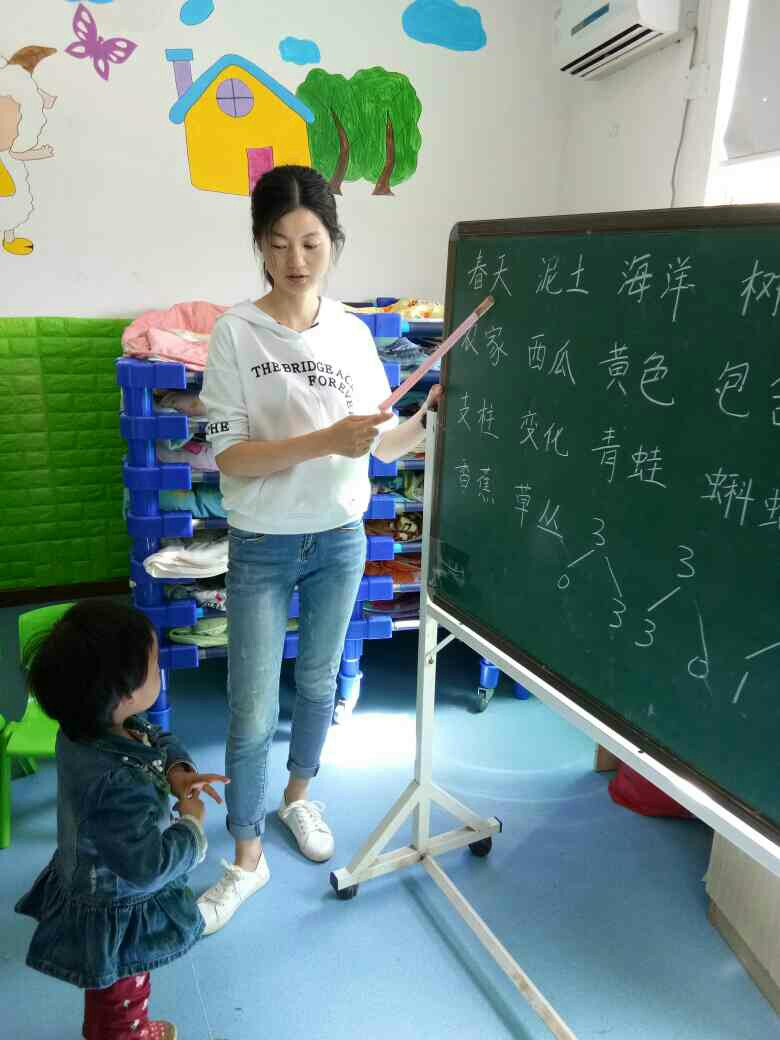 春天 泥土 海洋 树
农家 西瓜 黄色 包
支柱 变化 青蛙 蝌
香蕉 草丛
3 3
0 3 3 0 1
THE BRIDGE AC
FOREVE
THE